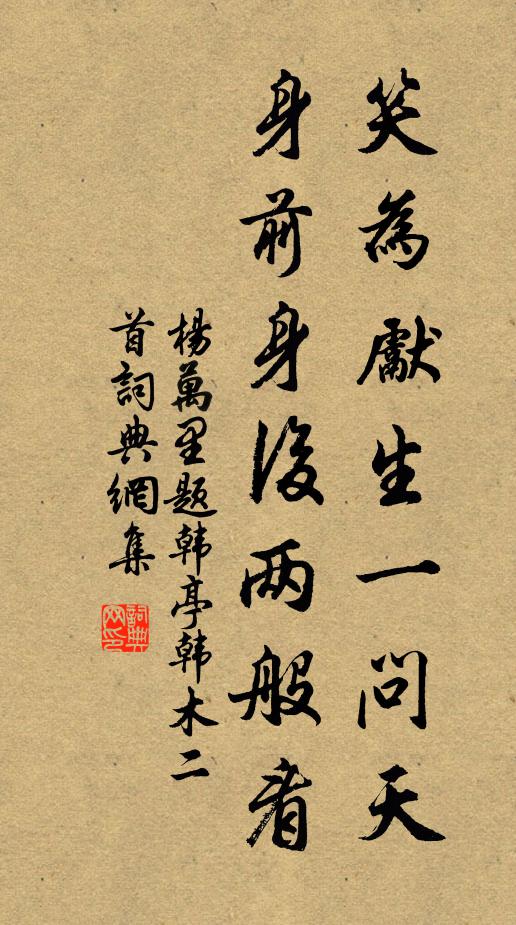 笑為獻生一問天
身前身後两般看
楊萬里题韩亭韩木二
首詞典網集
詞典網印